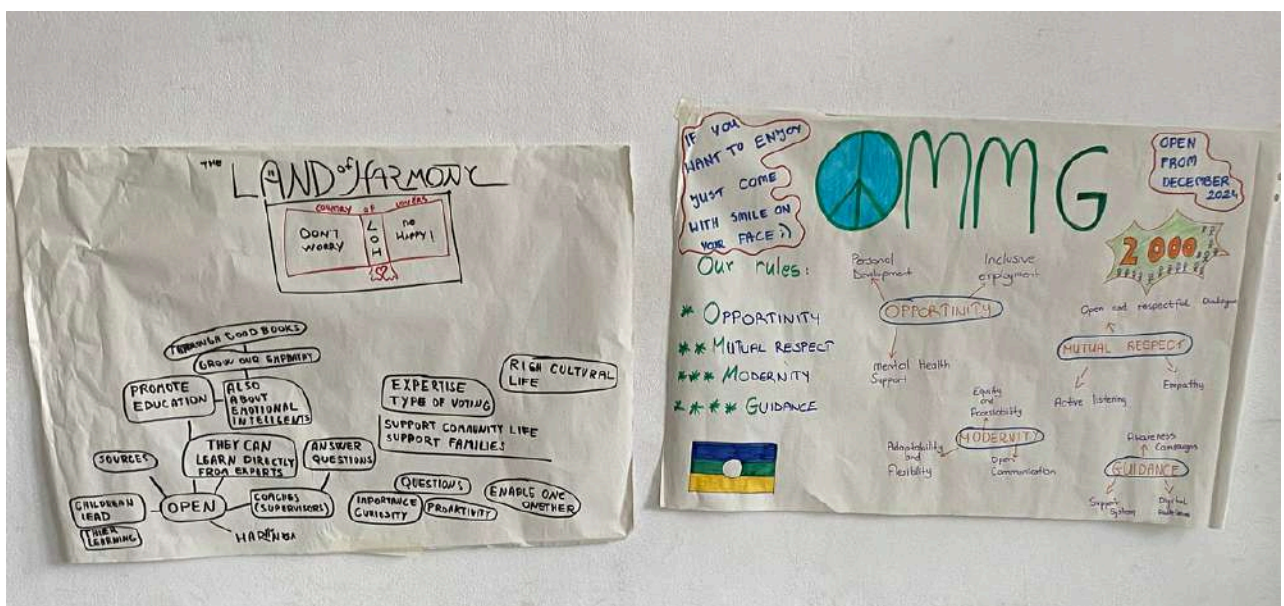 THE LAND of HARMONY
COUNTRY OF LOVERS
DON'T
WORRY
LOH
BE
HAPPY!
THROUGH GOOD BOOKS
GROW OUR EMPATHY
PROMOTE
EDUCATION
ALSO
ABOUT
EMOTIONAL
INTELIGENTS
THEY CAN
LEARN DIRECTLY
FROM EXPERTS
ANSWER
QUESTIONS
SOURCES
OPEN
COACHES
(SUPERVISORS)
CHILDREAN
LEAD
THIER
LEARNING
EXPERTISE
TYPE OF VOTING
SUPPORT COMMUNITY LIFE
SUPPORT FAMILIES
RICH CULTURAL
LIFE
QUESTIONS
IMPORTANCE
CURIOSITY
PROAKTIVITY
ENABLE ONE
ONETHER
IF YOU
WANT TO ENJOY
JUST COME
WITH SMILE ON
YOUR FACE :)
OMMG
OPEN
FROM
DECEMBER
2024
2000
Our rules:
* OPPORTINITY
** MUTUAL RESPECT
*** MODERNITY
**** GUIDANCE
Personal
Development
Inclusive
employment
OPPORTINITY
mental Health
Support
Open and respectful Dialogue
MUTUAL RESPECT
Active listening
Empathy
Equity
and
MODERNITY
Adaptability
and
Flexibility
Open
Communication
Awareness
Campaigns
GUIDANCE
Support
System
Digital